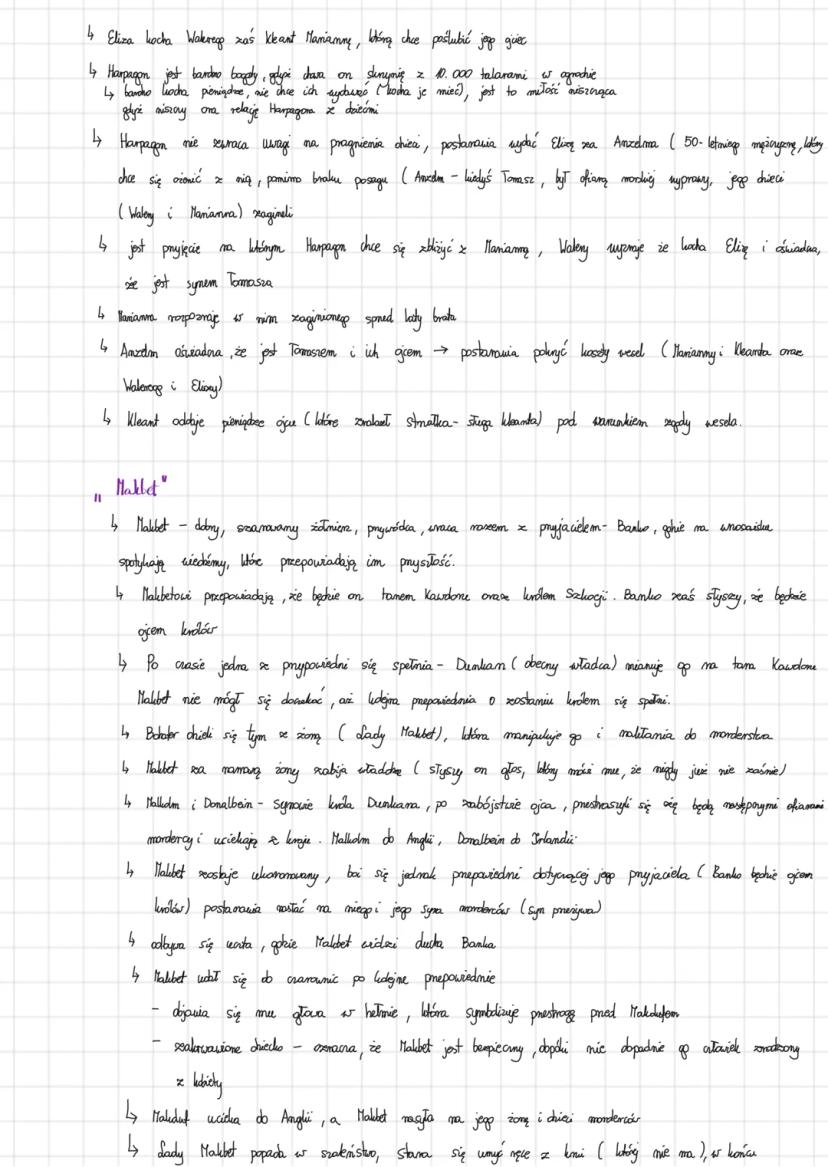 ↳ Eliza kocha Walerego zaś Kleant Mariannę, którą chce poślubić jego ojciec
↳ Harpagon jest bardzo bogaty, gdyż chowa on skrzynię z 10.000 talarami w ogrodzie
↳ bardzo kocha pieniądze, nie chce ich wydawać (kocha je mieć), jest to miłość niszcząca
gdyż niszczy ona relację Harpagona z dziećmi
↳ Harpagon nie zwraca uwagi na pragnienia dzieci, postanawia wydać Elizę za Anzelma ( 50-letniego mężczyznę, który
chce się ożenić z nią, pomimo braku posagu ( Anzelm - kiedyś Tomasz, był ofiarą morskiej wyprawy, jego dzieci
( Walery i Marianna) zaginęli
↳ jest przyjęcie na którym Harpagon chce się zbliżyć z Marianną, Walery wyznaje że kocha Elizę i oświadcza,
że jest synem Tomasza
↳ Marianna rozpoznaje w nim zaginionego sprzed laty brata
↳ Anzelm oświadcza, że jest Tomaszem i ich ojcem → postanawia pokryć koszty wesel ( Marianny i Kleanta oraz
Walerego i Elizy)
↳ Kleant oddaje pieniądze ojcu ( które znalazł Strzałka - sługa Kleanta) pod warunkiem zgody wesela.
„ Makbet"
↳ Makbet - dobry, szanowany żołnierz, przywódca, wraca razem z przyjacielem - Banko, gdzie na wrzosowisku
spotykają wiedźmy, które przepowiadają im przyszłość.
↳ Makbetowi przepowiadają, że będzie on tanem Kawdoru oraz królem Szkocji. Banko zaś słyszy, że będzie
ojcem królów
↳ Po czasie jedna z przypowiedni się spełnia - Dunkan ( obecny władca) mianuje go na tana Kawdoru
Makbet nie mógł się doczekać, aż kolejna przepowiednia o zostaniu królem się spełni.
↳ Bohater dzieli się tym z żoną ( Lady Makbet), która manipuluje go i nakłania do morderstwa
↳ Makbet za namową żony zabija władcę ( słyszy on głos, który mówi mu, że nigdy już nie zaśnie)
↳ Malkolm i Donalbein - synowie króla Dunkana, po zabójstwie ojca, przestraszyli się że będą następnymi ofiarami
mordercy i uciekają z kraju. Malkolm do Anglii, Donalbein do Irlandii
↳ Makbet zostaje ukoronowany, boi się jednak przepowiedni dotyczącej jego przyjaciela ( Banko będzie ojcem
królów) postanawia nasłać na niego i jego syna morderców (syn przeżywa)
↳ odbywa się uczta, gdzie Makbet widzi ducha Banka
↳ Makbet udał się do czarownic po kolejne przepowiednie
- objawia się mu głowa w hełmie, która symbolizuje przestrogę przed Makdufem
- zakrwawione dziecko - oznacza, że Makbet jest bezpieczny, dopóki nie dopadnie go człowiek zrodzony
z kobiety
↳ Makduf ucieka do Anglii, a Makbet nasyła na jego żonę i dzieci morderców
↳ Lady Makbet popada w szaleństwo, stara się umyć ręce z krwi ( której nie ma), w końcu